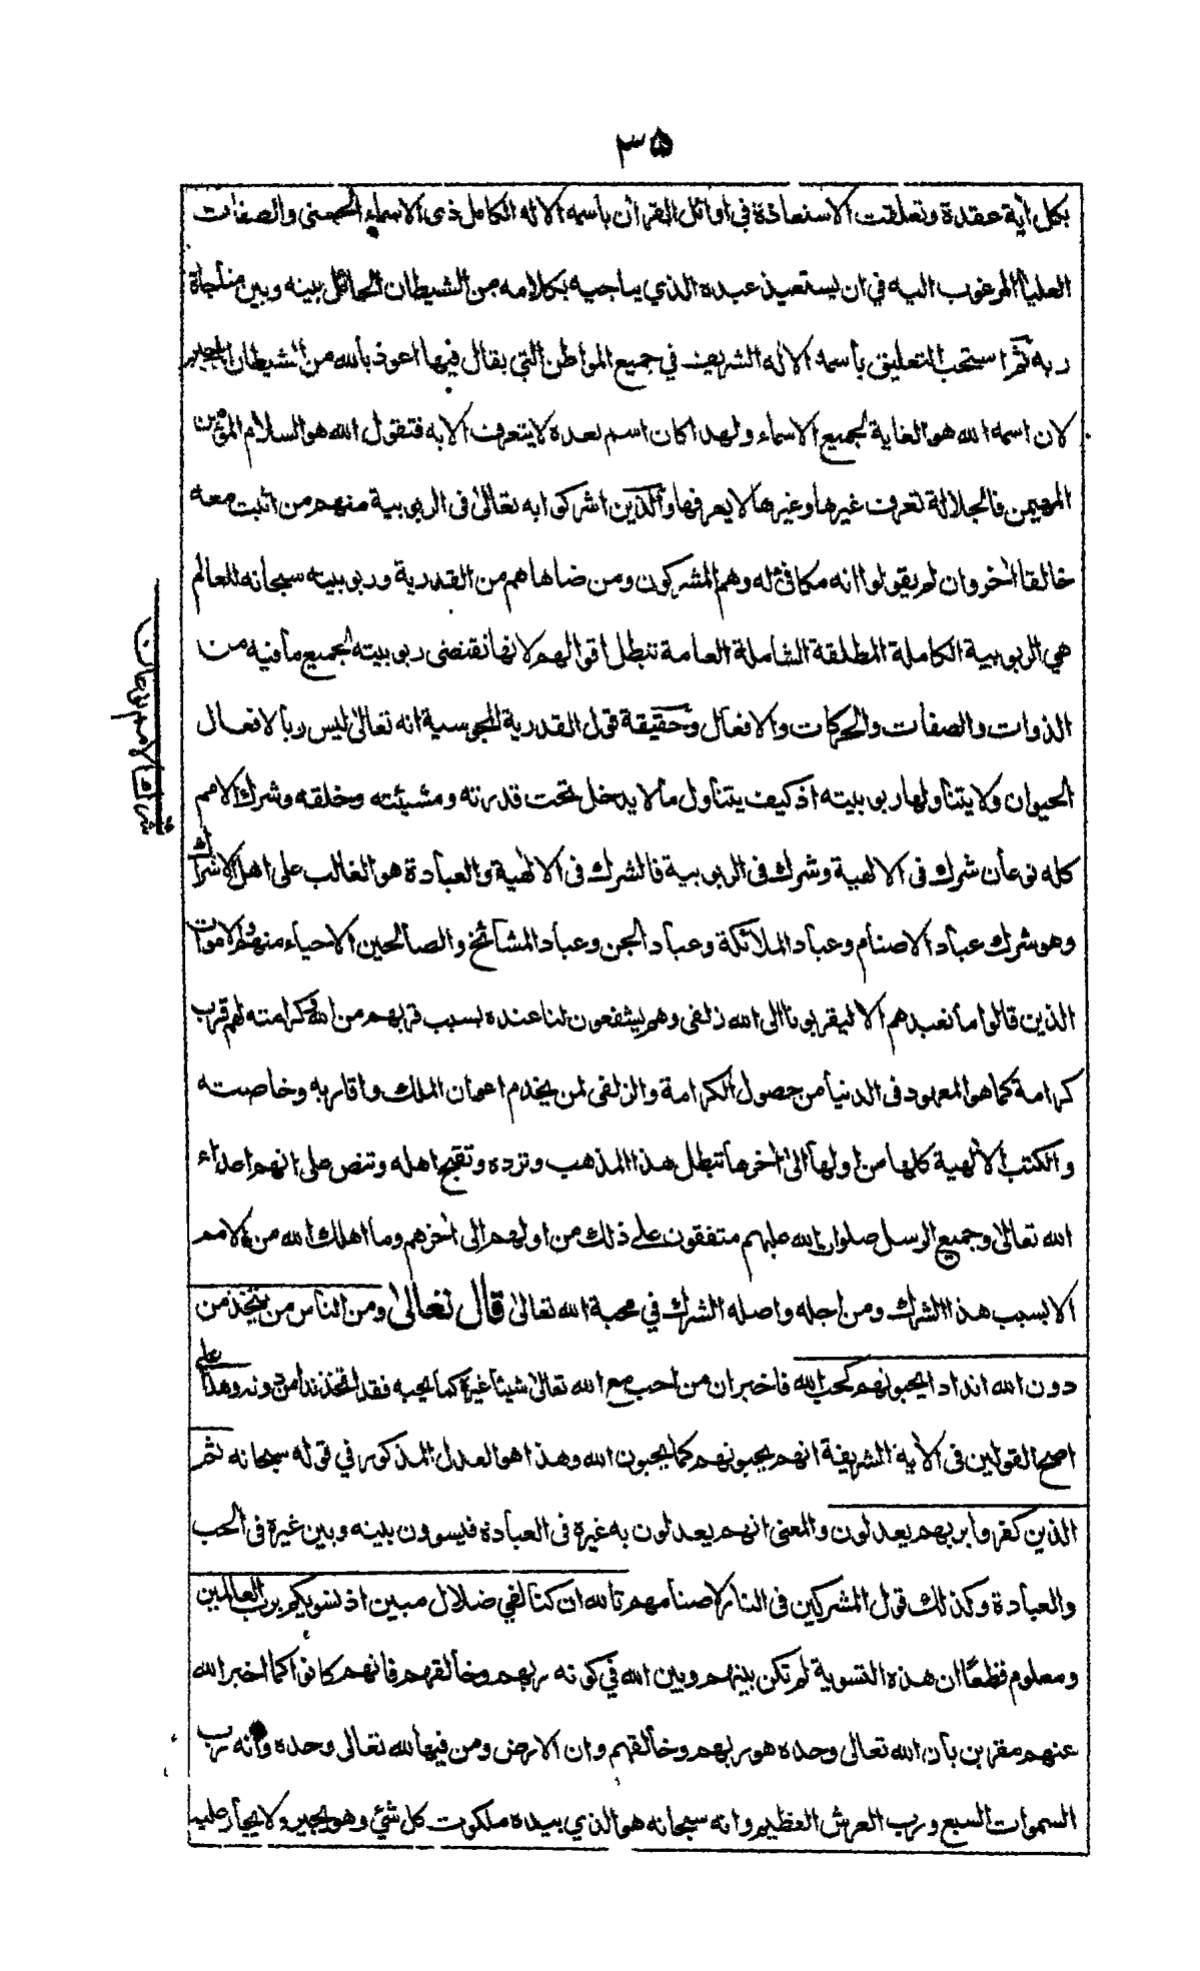 ٣٥
بكل اٰية عقدة وتعلقت الاستعاذة في اوائل القراٰن باسمه الاله الكامل ذى الاسماء الحسنى والصفات
العليا المرغوب اليه في ان يستعيذ عبده الذي يناجيه بكلامه من الشيطان الحائل بينه وبين مناجاة
ربه ثم استحب التعليق باسمه الاله الشريف في جميع المواطن التي يقال فيها اعوذ بالله من الشيطان الرجيم
لان اسمه الله هو الغاية لجميع الاسماء ولهذا كان اسم بعده لا يتعرف الا به فتقول الله هو السلام المؤمن
المهيمن فالجلالة تعرف غيرها وغيرها لا يعرفها والذين اشركوا به تعالىٰ فى الربوبية منهم من اثبت معه
خالقا اٰخر وان لم يقولوا انه مكافئ له وهم المشركون ومن ضاهاهم من القدرية وربوبيته سبحانه للعالم
هي الربوبية الكاملة المطلقة الشاملة العامة تبطل اقوالهم لانها تقتضى ربوبيته لجميع ما فيه من
الذوات والصفات والحركات والافعال وحقيقة قول القدرية المجوسية انه تعالىٰ ليس ربا لافعال
الحيوان ولا يتناولها ربوبيته اذ كيف يتناول ما لا يدخل تحت قدرته ومشيئته وخلقه وشرك الامم
كله نوعان شرك فى الالهية وشرك فى الربوبية فالشرك فى الالٰهية والعبادة هو الغالب على اهل الاشراك
وهو شرك عباد الاصنام وعباد الملائكة وعباد الجن وعباد المشائخ والصالحين الاحياء منهم والاموات
الذين قالوا ما نعبدهم الا ليقربونا الى الله زلفى وهم يشفعون لنا عنده بسبب قربهم من الله وكرامته لهم قرب
كرامة كما هو المعهود فى الدنيا من حصول الكرامة والزلفى لمن يخدم اعوان الملك واقاربه وخاصته
والكتب الالٰهية كلها من اولها الىٰ اٰخرها تبطل هذا المذهب وترده وتقبح اهله وتنص على انهم اعداء
الله تعالىٰ وجميع الرسل صلوات الله عليهم متفقون على ذلك من اولهم الى اٰخرهم وما اهلك الله من الامم
الا بسبب هذا الشرك ومن اجله واصله الشرك في محبة الله تعالىٰ قال تعالىٰ ومن الناس من يتخذ من
دون الله اندادا يحبونهم كحب الله فاخبر ان من احب مع الله تعالىٰ شيئا غيره كما يحبه فقد اتخذ ندا من دونه وهذا على
اصح القولين فى الاٰية الشريفة انهم يحبونهم كما يحبون الله وهذا هو العدل المذكور في قوله سبحانه ثم
الذين كفروا بربهم يعدلون والمعنى انهم يعدلون به غيره فى العبادة فيسوون بينه وبين غيره فى الحب
والعبادة وكذلك قول المشركين فى النار لاصنامهم تالله ان كنا لفي ضلال مبين اذ نسويكم برب العالمين
ومعلوم قطعًا ان هذه التسوية لم تكن بينهم وبين الله في كونه ربهم وخالقهم فانهم كانوا كما اخبر الله
عنهم مقرين بان الله تعالى وحده هو ربهم وخالقهم وان الارض ومن فيها لله تعالى وحده وانه رب
السموات السبع ورب العرش العظيم وانه سبحانه هو الذي بيده ملكوت كل شئ وهو يجير ولا يجار عليه